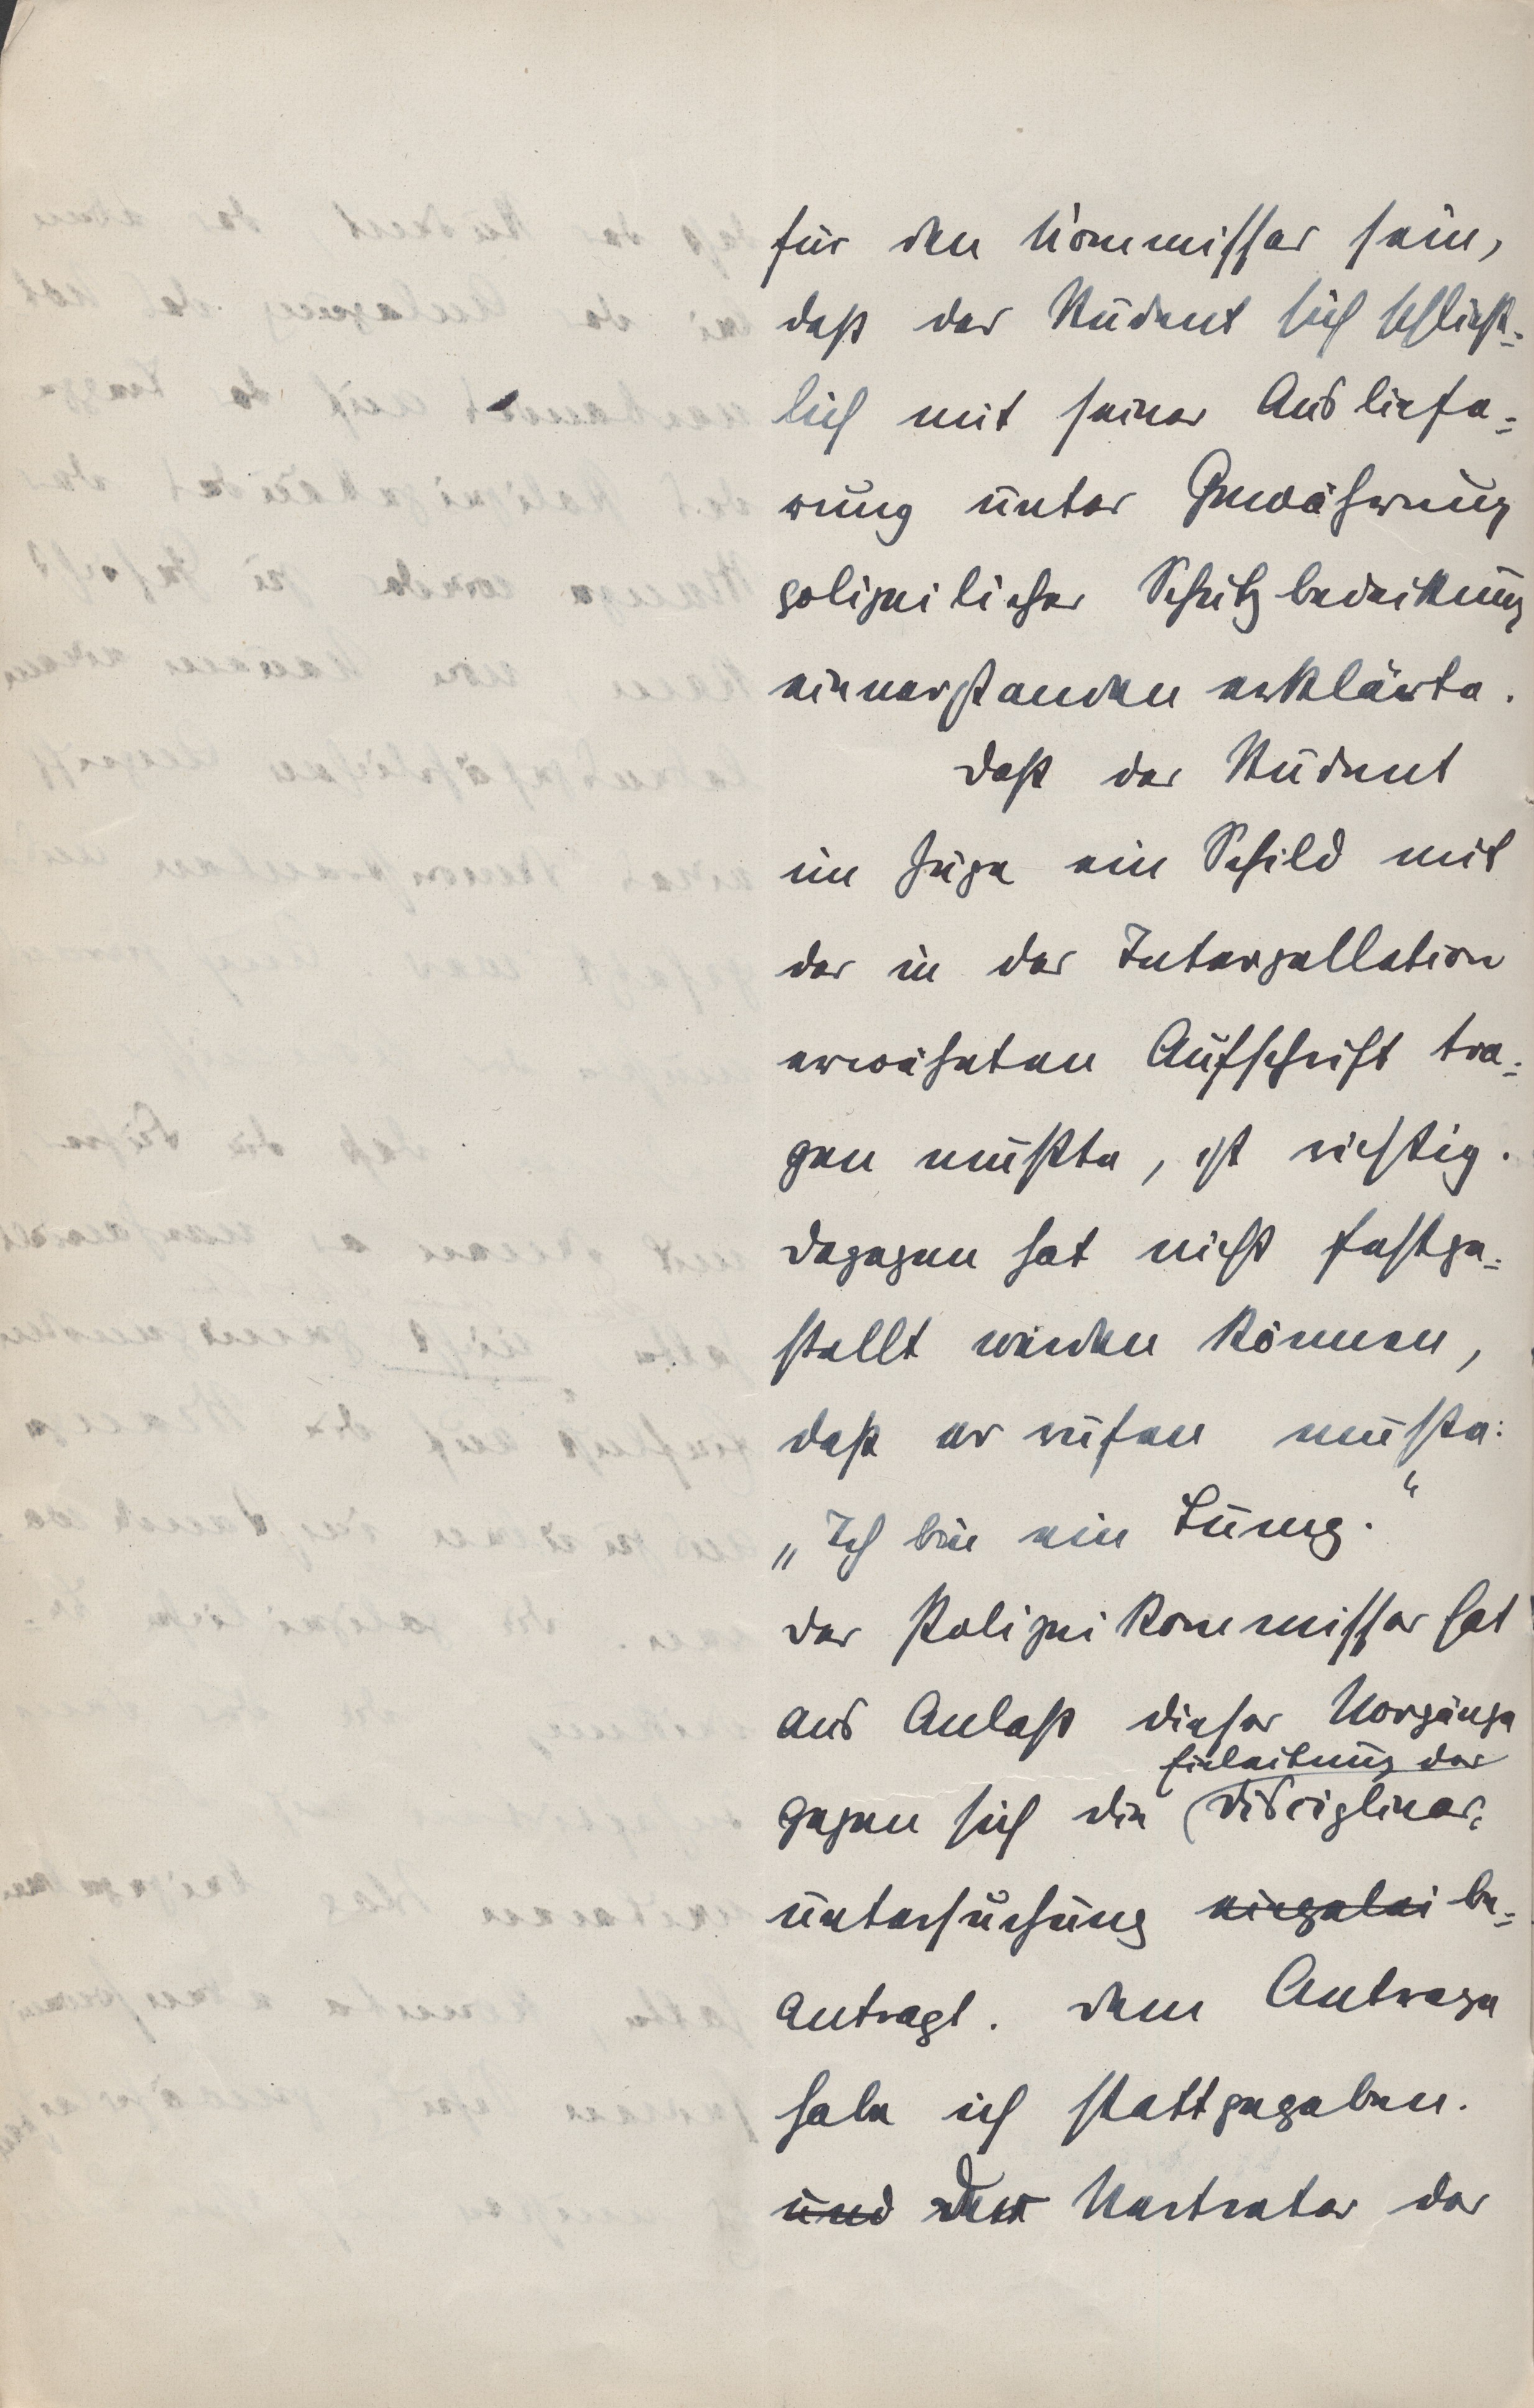 für den Kommissar sein,
daß der Student sich schließ-
lich mit seiner Ausliefe-
rung unter Gewährung
polizeilicher Schutzbedeckung
einverstanden erklärte.
Daß der Student
im Zuge ein Schild mit
der in der Interpellation
erwähnten Aufschrift tra-
gen mußte, ist richtig.
Dagegen hat nicht festge-
stellt werden können,
daß er rufen mußte:
„Ich bin ein Lump.“
Der Polizeikommissar hat
aus Anlaß dieser Vorgänge
Einleitung der
gegen sich die Disciplinar-
untersuchung eingelei be-
antragt. Dem Antrage
habe ich stattgegeben.
und Der Vertreter der